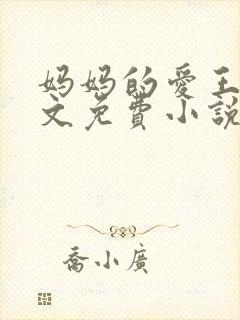 妈妈的爱王
文免费小說
喬小廣